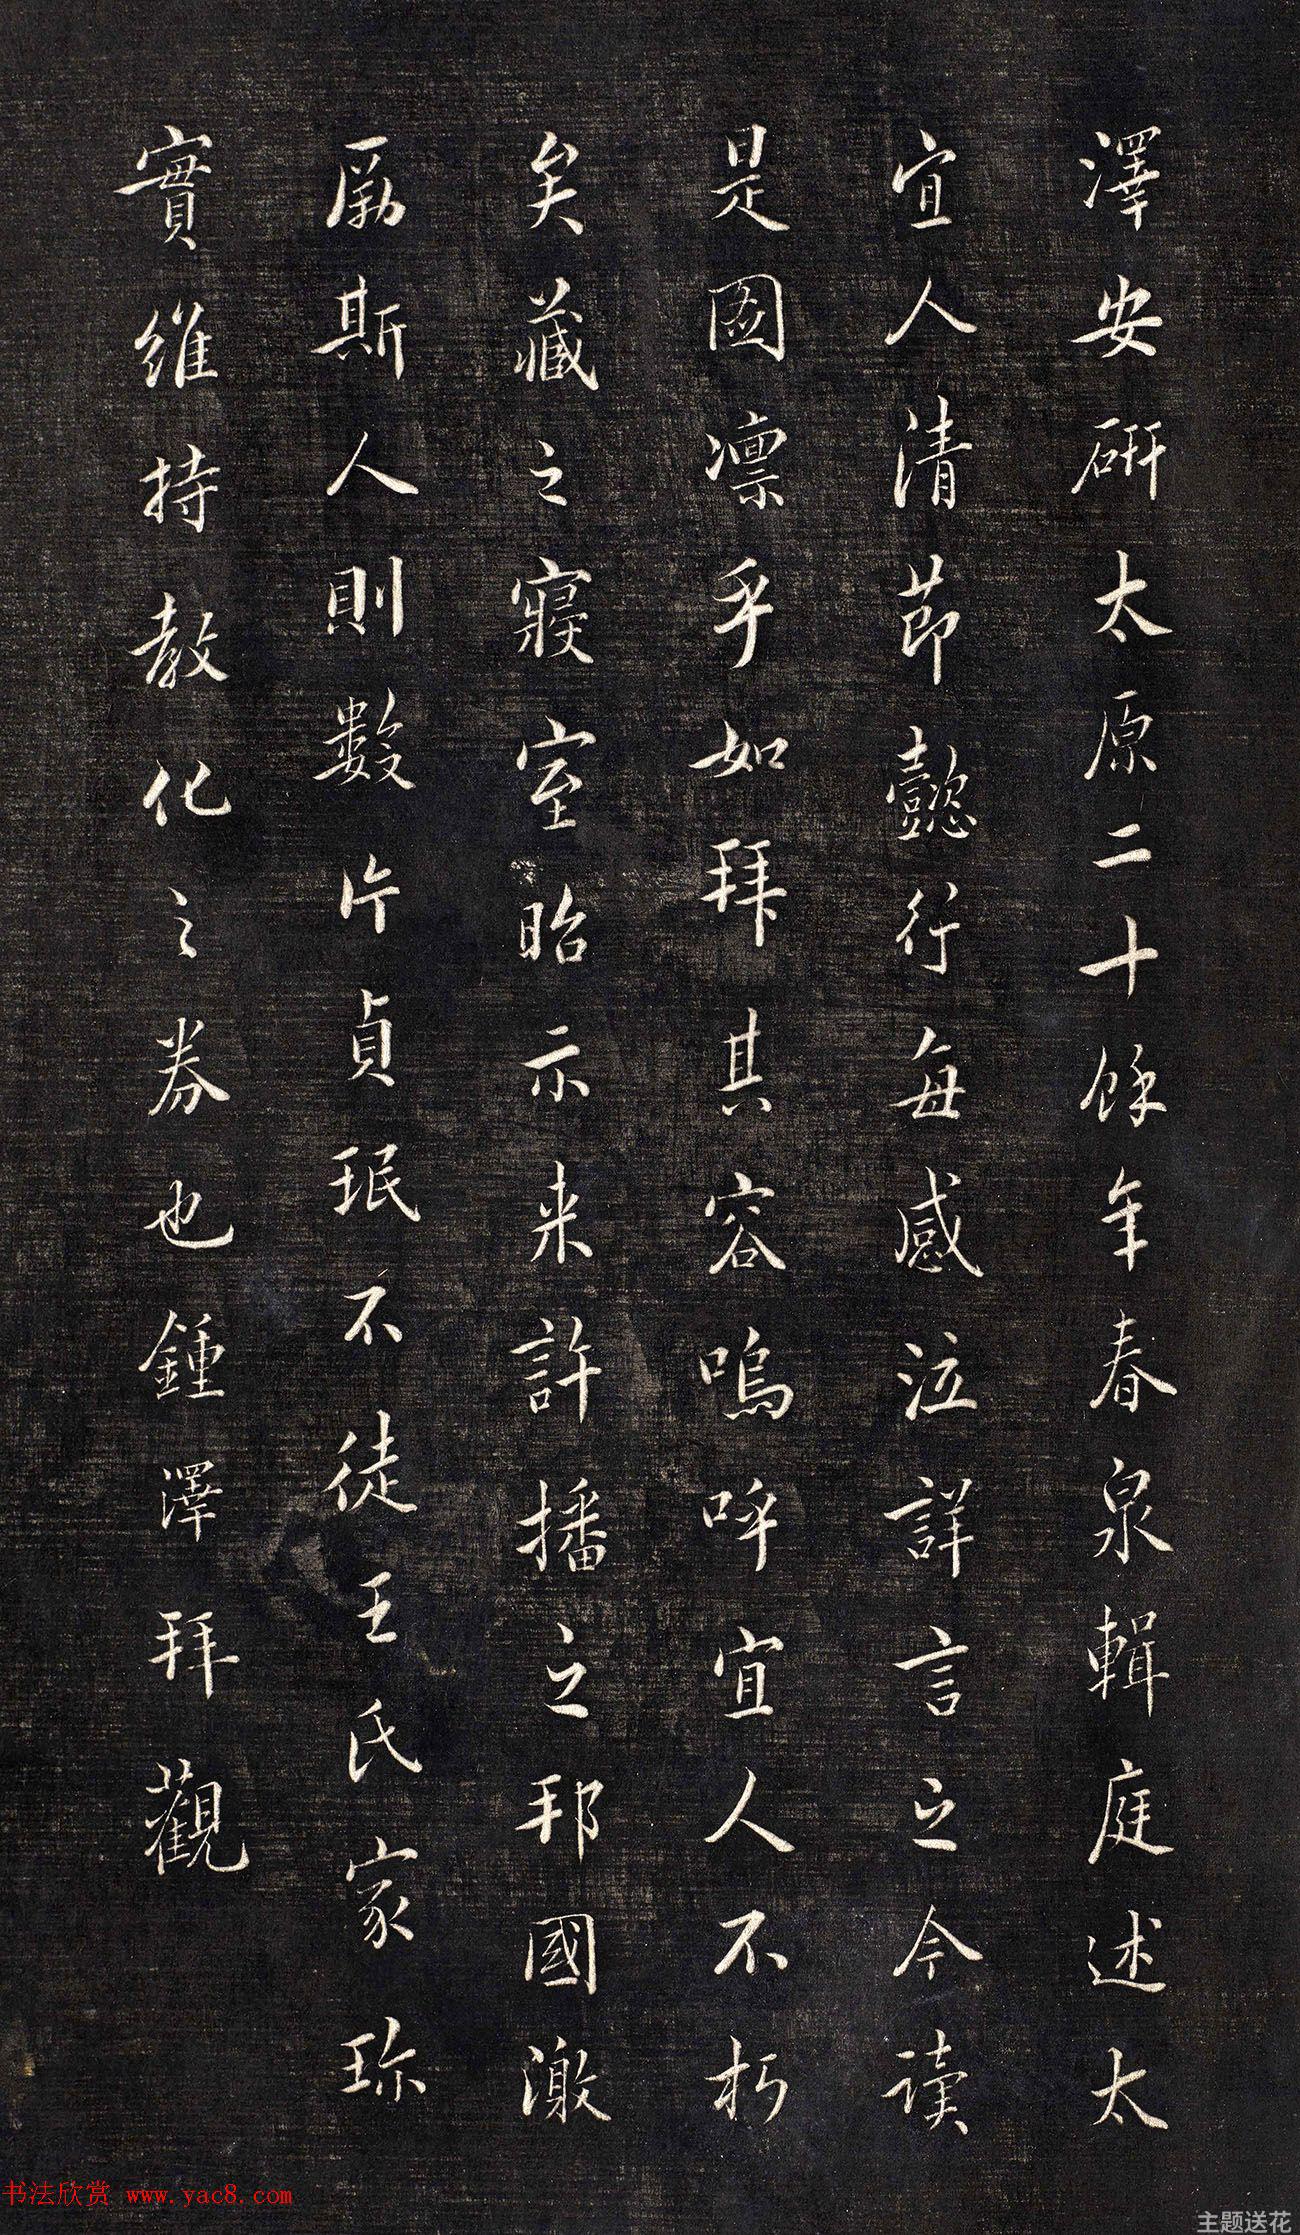 澤安研太原二十餘年春泉輯庭述太
宜人清節懿行每感泣詳言之今讀
是圖凛乎如拜其容嗚呼宜人不朽
矣藏之寢室昭示来許播之邦國激
厲斯人則數片貞珉不徒王氏家珍
實維持教化之券也鍾澤拜觀
书法欣赏 www.yac8.com
主题送花